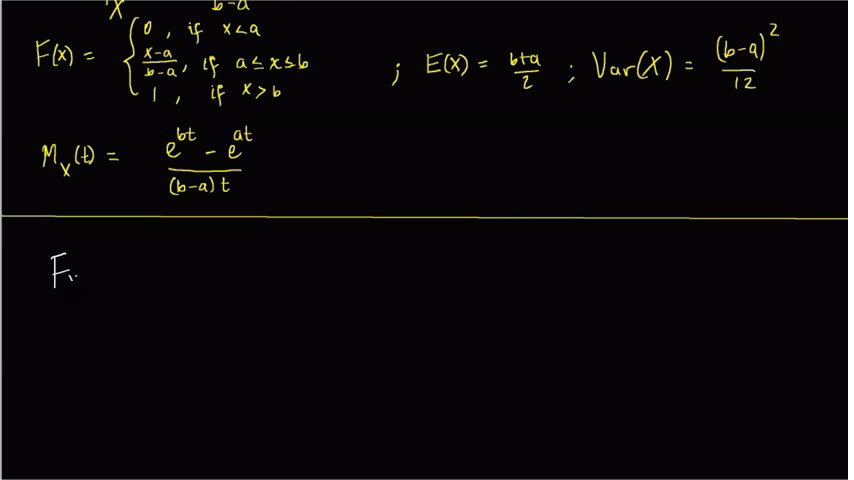 X b-a
F(x) = { 0, if x<a
x-a/b-a, if a≤x≤b
1, if x>b
; E(X) = b+a/2 ; Var(X) = (b-a)²/12
M_X(t) = e^bt - e^at / (b-a)t
F